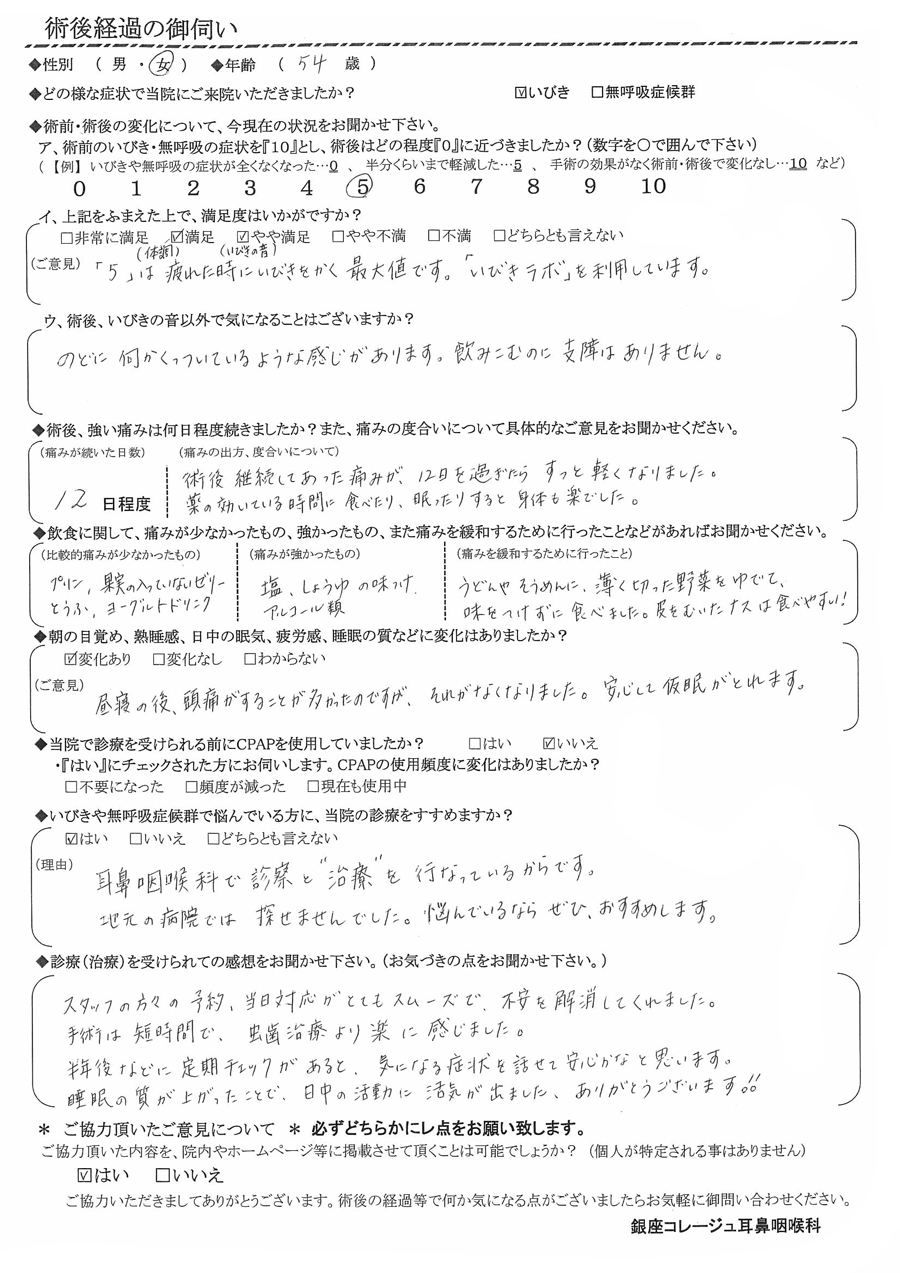 術後経過の御伺い
◆性別 ( 男 ・ 女 ) ◆年齢 ( 54 歳 )
◆どの様な症状で当院にご来院いただきましたか？ ☑いびき □無呼吸症候群
◆術前・術後の変化について、今現在の状況をお聞かせ下さい。
ア、術前のいびき・無呼吸の症状を『10』とし、術後はどの程度『0』に近づきましたか？(数字を〇で囲んで下さい)
(【例】 いびきや無呼吸の症状が全くなくなった…0 、 半分くらいまで軽減した…5 、 手術の効果がなく術前・術後で変化なし…10 など)
0 1 2 3 4 5 6 7 8 9 10
イ、上記をふまえた上で、満足度はいかがですか？
□非常に満足 ☑満足 ☑やや満足 □やや不満 □不満 □どちらとも言えない
(体調) (いびきの音)
(ご意見) 「5」は 疲れた時にいびきをかく 最大値です。「いびきラボ」を利用しています。
ウ、術後、いびきの音以外で気になることはございますか？
のどに 何かくっついているような感じがあります。飲みこむのに 支障はありません。
◆術後、強い痛みは何日程度続きましたか？また、痛みの度合いについて具体的なご意見をお聞かせください。
(痛みが続いた日数) (痛みの出方、度合いについて)
術後 継続してあった痛みが、12日を過ぎたら すっと 軽くなりました。
12 日程度 薬の効いている時間に 食べたり、眠ったりすると 身体も楽でした。
◆飲食に関して、痛みが少なかったもの、強かったもの、また痛みを緩和するために行ったことなどがあればお聞かせください。
(比較的痛みが少なかったもの) (痛みが強かったもの) (痛みを緩和するために行ったこと)
プリン, 果実の入っていないゼリー 塩、しょうゆ の味つけ うどんや そうめんに、薄く切った野菜をゆでて、
とうふ, ヨーグルトドリンク アルコール類 味をつけずに 食べました。皮をむいた ナスは食べやすい!
◆朝の目覚め、熟睡感、日中の眠気、疲労感、睡眠の質などに変化はありましたか？
☑変化あり □変化なし □わからない
(ご意見) 昼寝の後、頭痛がすることが多かったのですが、それがなくなりました。安心して仮眠がとれます。
◆当院で診療を受けられる前にCPAPを使用していましたか？ □はい ☑いいえ
・『はい』にチェックされた方にお伺いします。CPAPの使用頻度に変化はありましたか？
□不要になった □頻度が減った □現在も使用中
◆いびきや無呼吸症候群で悩んでいる方に、当院の診療をすすめますか？
☑はい □いいえ □どちらとも言えない
(理由) 耳鼻咽喉科で 診察と“治療”を 行なっているからです。
地元の病院では 探せませんでした。悩んでいるなら ぜひ、おすすめします。
◆診療(治療)を受けられての感想をお聞かせ下さい。(お気づきの点をお聞かせ下さい。)
スタッフの方々の 予約、当日対応がとてもスムーズで、不安を解消してくれました。
手術は 短時間で、虫歯治療より楽に 感じました。
半年後などに 定期チェックが あると、気になる症状を話せて安心かなと思います。
睡眠の質が上がったことで、日中の活動に 活気が出ました、ありがとうございます!!
＊ ご協力頂いたご意見について ＊ 必ずどちらかにレ点をお願い致します。
ご協力頂いた内容を、院内やホームページ等に掲載させて頂くことは可能でしょうか？ (個人が特定される事はありません)
☑はい □いいえ
ご協力いただきましてありがとうございます。術後の経過等で何か気になる点がございましたらお気軽に御問い合わせください。
銀座コレージュ耳鼻咽喉科